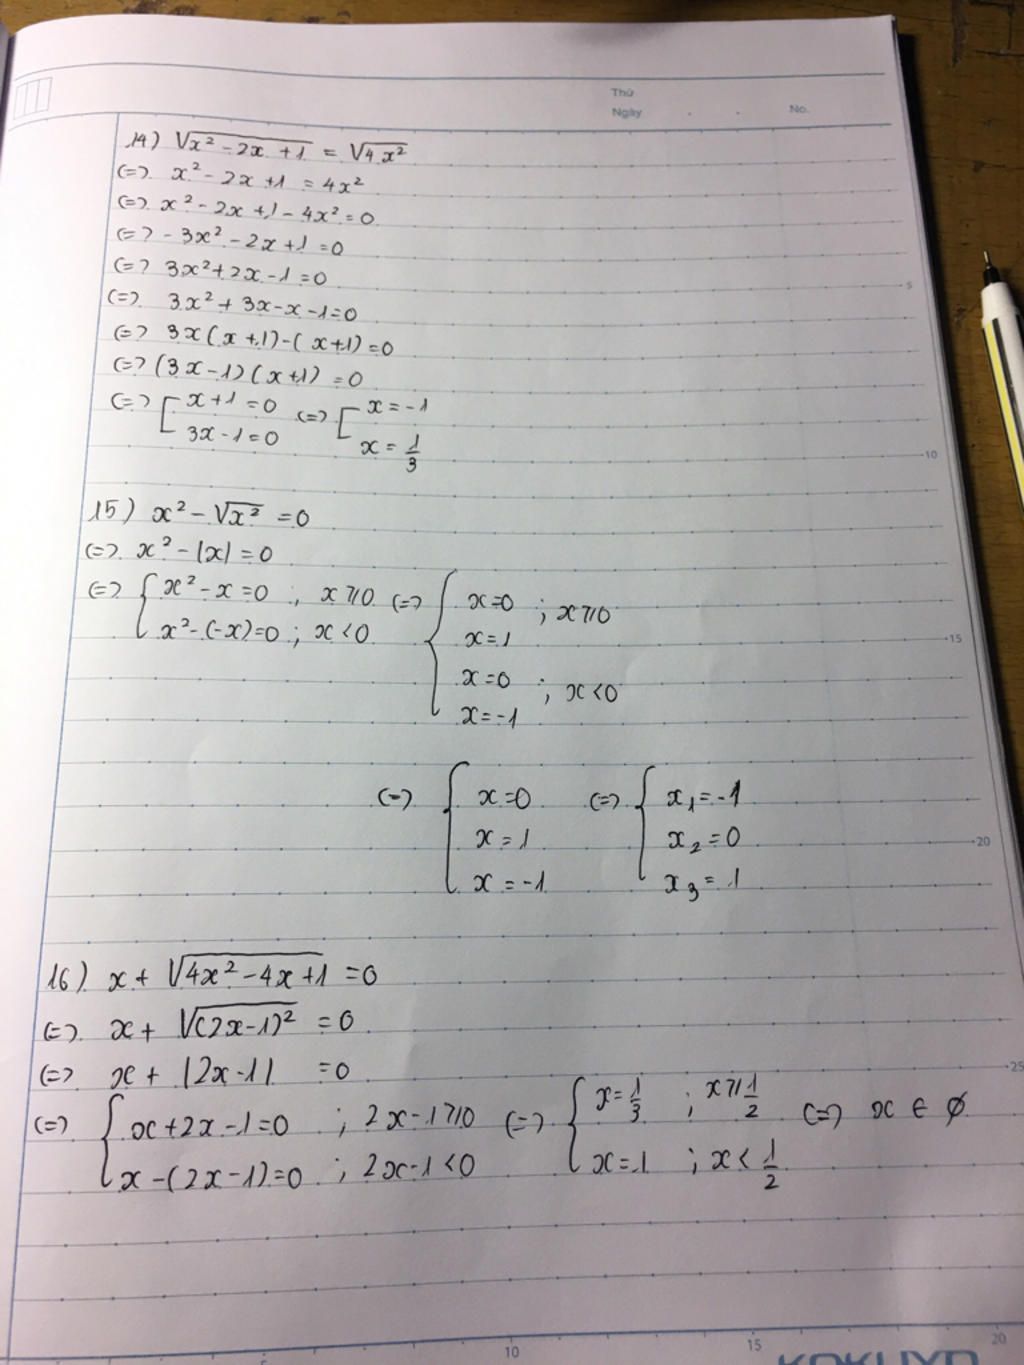 Thứ
Ngày . . No.
14) √(x² - 2x + 1) = √(4x²)
(=) x² - 2x + 1 = 4x²
(=) x² - 2x + 1 - 4x² = 0
(=) - 3x² - 2x + 1 = 0
(=) 3x² + 2x - 1 = 0
(=) 3x² + 3x - x - 1 = 0
(=) 3x(x + 1) - (x + 1) = 0
(=) (3x - 1)(x + 1) = 0
(=) [ x + 1 = 0 (=) [ x = -1
3x - 1 = 0 x = 1/3
15) x² - √(x²) = 0
(=) x² - |x| = 0
(=) { x² - x = 0 ; x ⩾ 0 (=) { x = 0 ; x ⩾ 0
x² - (-x) = 0 ; x < 0 x = 1
x = 0 ; x < 0
x = -1
(=) { x = 0 (=) { x₁ = -1
x = 1 x₂ = 0
x = -1 x₃ = 1
16) x + √(4x² - 4x + 1) = 0
(=) x + √((2x - 1)²) = 0
(=) x + |2x - 1| = 0
(=) { x + 2x - 1 = 0 ; 2x - 1 ⩾ 0 (=) { x = 1/3 ; x ⩾ 1/2 (=) x ∈ ∅
x - (2x - 1) = 0 ; 2x - 1 < 0 x = 1 ; x < 1/2
5
10
15
20
25
10 15 20
KOKUYO